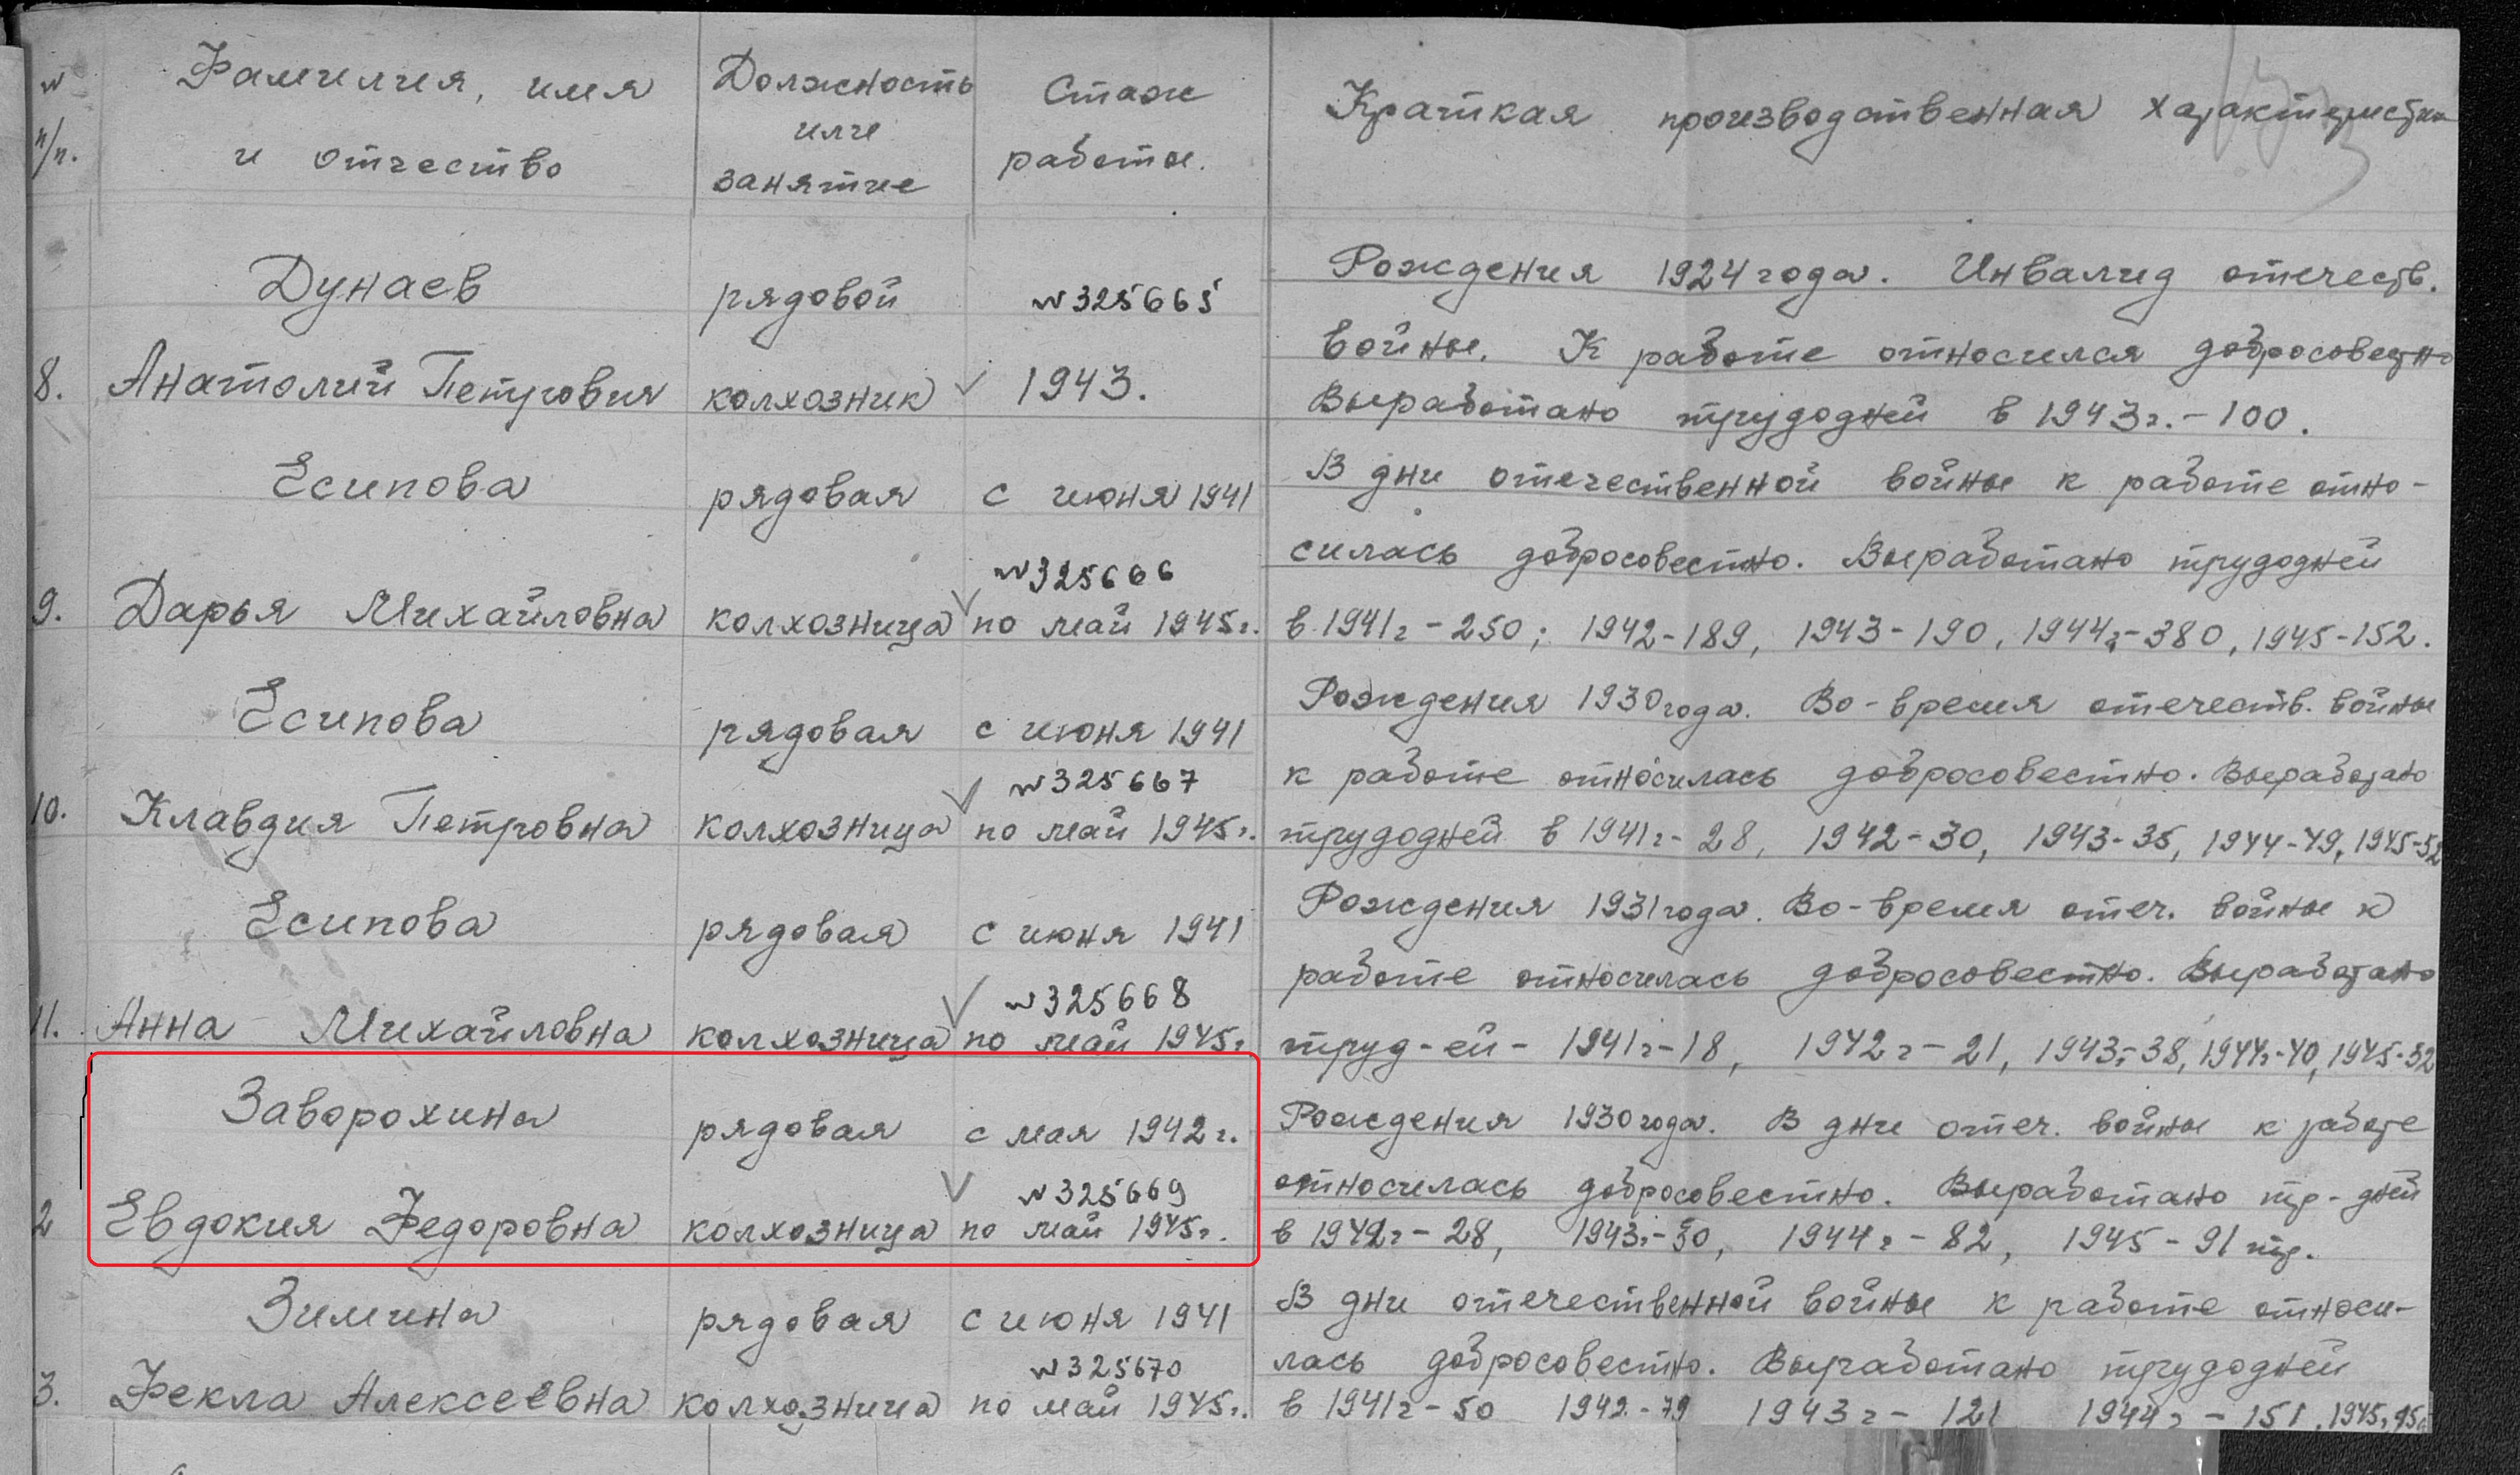 № п/п. Фамилия, имя и отчество
Должность или занятие
Стаж работы.
Краткая производственная характеристик
Дунаев рядовой №325665 Рождения 1924 года. Инвалид отечеств.
войны. К работе относился добросовестно
8. Анатолий Петрович колхозник 1943. Выработано трудодней в 1943г. - 100.
Есипова рядовая с июня 1941 В дни отечественной войны к работе отно-
№325666 силась добросовестно. Выработано трудодней
9. Дарья Михайловна колхозница по май 1945г. в 1941г - 250; 1942 - 189, 1943 - 190, 1944г - 380, 1945 - 152.
Есипова рядовая с июня 1941 Рождения 1930 года. Во-время отечеств. войны
№325667 к работе относилась добросовестно. Выработано
10. Клавдия Петровна колхозница по май 1945г. трудодней в 1941г - 28, 1942 - 30, 1943 - 35, 1944 - 49, 1945 - 52
Есипова рядовая с июня 1941 Рождения 1931 года. Во-время отеч. войны к
№325668 работе относилась добросовестно. Выработано
11. Анна Михайловна колхозница по май 1945г. труд-ей - 1941г - 18, 1942г - 21, 1943г - 38, 1944г - 40, 1945 - 32
Заворохина рядовая с мая 1942г. Рождения 1930 года. В дни отеч. войны к работе
№325669 относилась добросовестно. Выработано тр-дней
2 Евдокия Федоровна колхозница по май 1945г. в 1942г - 28, 1943г - 50, 1944г - 82, 1945 - 91 тр.
Зимина рядовая с июня 1941 В дни отечественной войны к работе относи-
№325670 лась добросовестно. Выработано трудодней
3. Фекла Алексеевна колхозница по май 1945г. в 1941г - 50 1942 - 79 1943г - 121 1944г - 151, 1945г